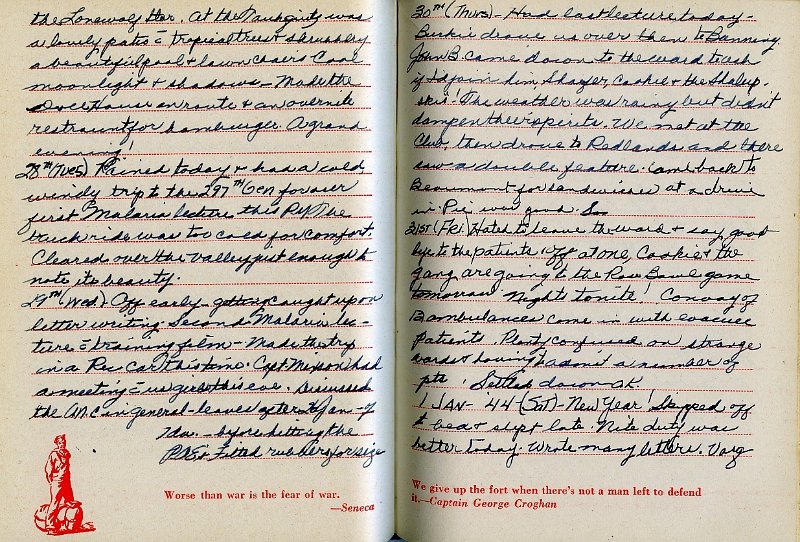 the Lonewolf Htr. At the Naughty was
a lovely patio = tropical trees & shrubbery
a beautiful pool & lawn chairs Cool
moonlight & shadows - Made the
en route & an overnite
restraunt for hamburger. A grand
evening!
28TH (Tues) Rained today & had a cold,
windy trip to the 297TH Gen for our
first Malaria lecture this PM. The
truck ride was too cold for comfort.
Cleared over the valley just enough to
note its beauty.
29TH (Wed) Off early - getting caught up on
letter writing. Second Malaria lec-
ture = training film - Made the trip
in a Rec car this time. Capt Mixson had
a meeting = us girls this eve. Discussed
the A.N.C. in general - leaves after 1 Jan - 7
Ida. - before hitting the
P.X. Fitted rubbers for size
Worse than war is the fear of war.
—Seneca
30TH (Thurs) - Had last lecture today -
drove us over then to Banning.
John B. came down to the ward to ask
if I'd join him Shaefer, Cookie & the
! The weather was rainy but didn't
dampen their spirits. We met at the
Club, then drove to Redlands and there
saw a double feature. Came back to
Beaumont for sandwiches at a drive
in. Pie was good. So
31ST (Fri) Hated to leave the ward & say good
bye to the patients. Off at one, Cookie & the
gang are going to the Rose Bowl game
tomorrow Nights tonite! Convoy of
8 ambulances came in with evacuee
patients. Plenty confused on strange
wards & having hadn't a number of
pts! Settled down OK
1 JAN '44 (Sat) - New Year! Skipped off
to bed & slept late. Nite duty was
better today. Wrote many letters. Varg
We give up the fort when there's not a man left to defend
it.—Captain George Croghan